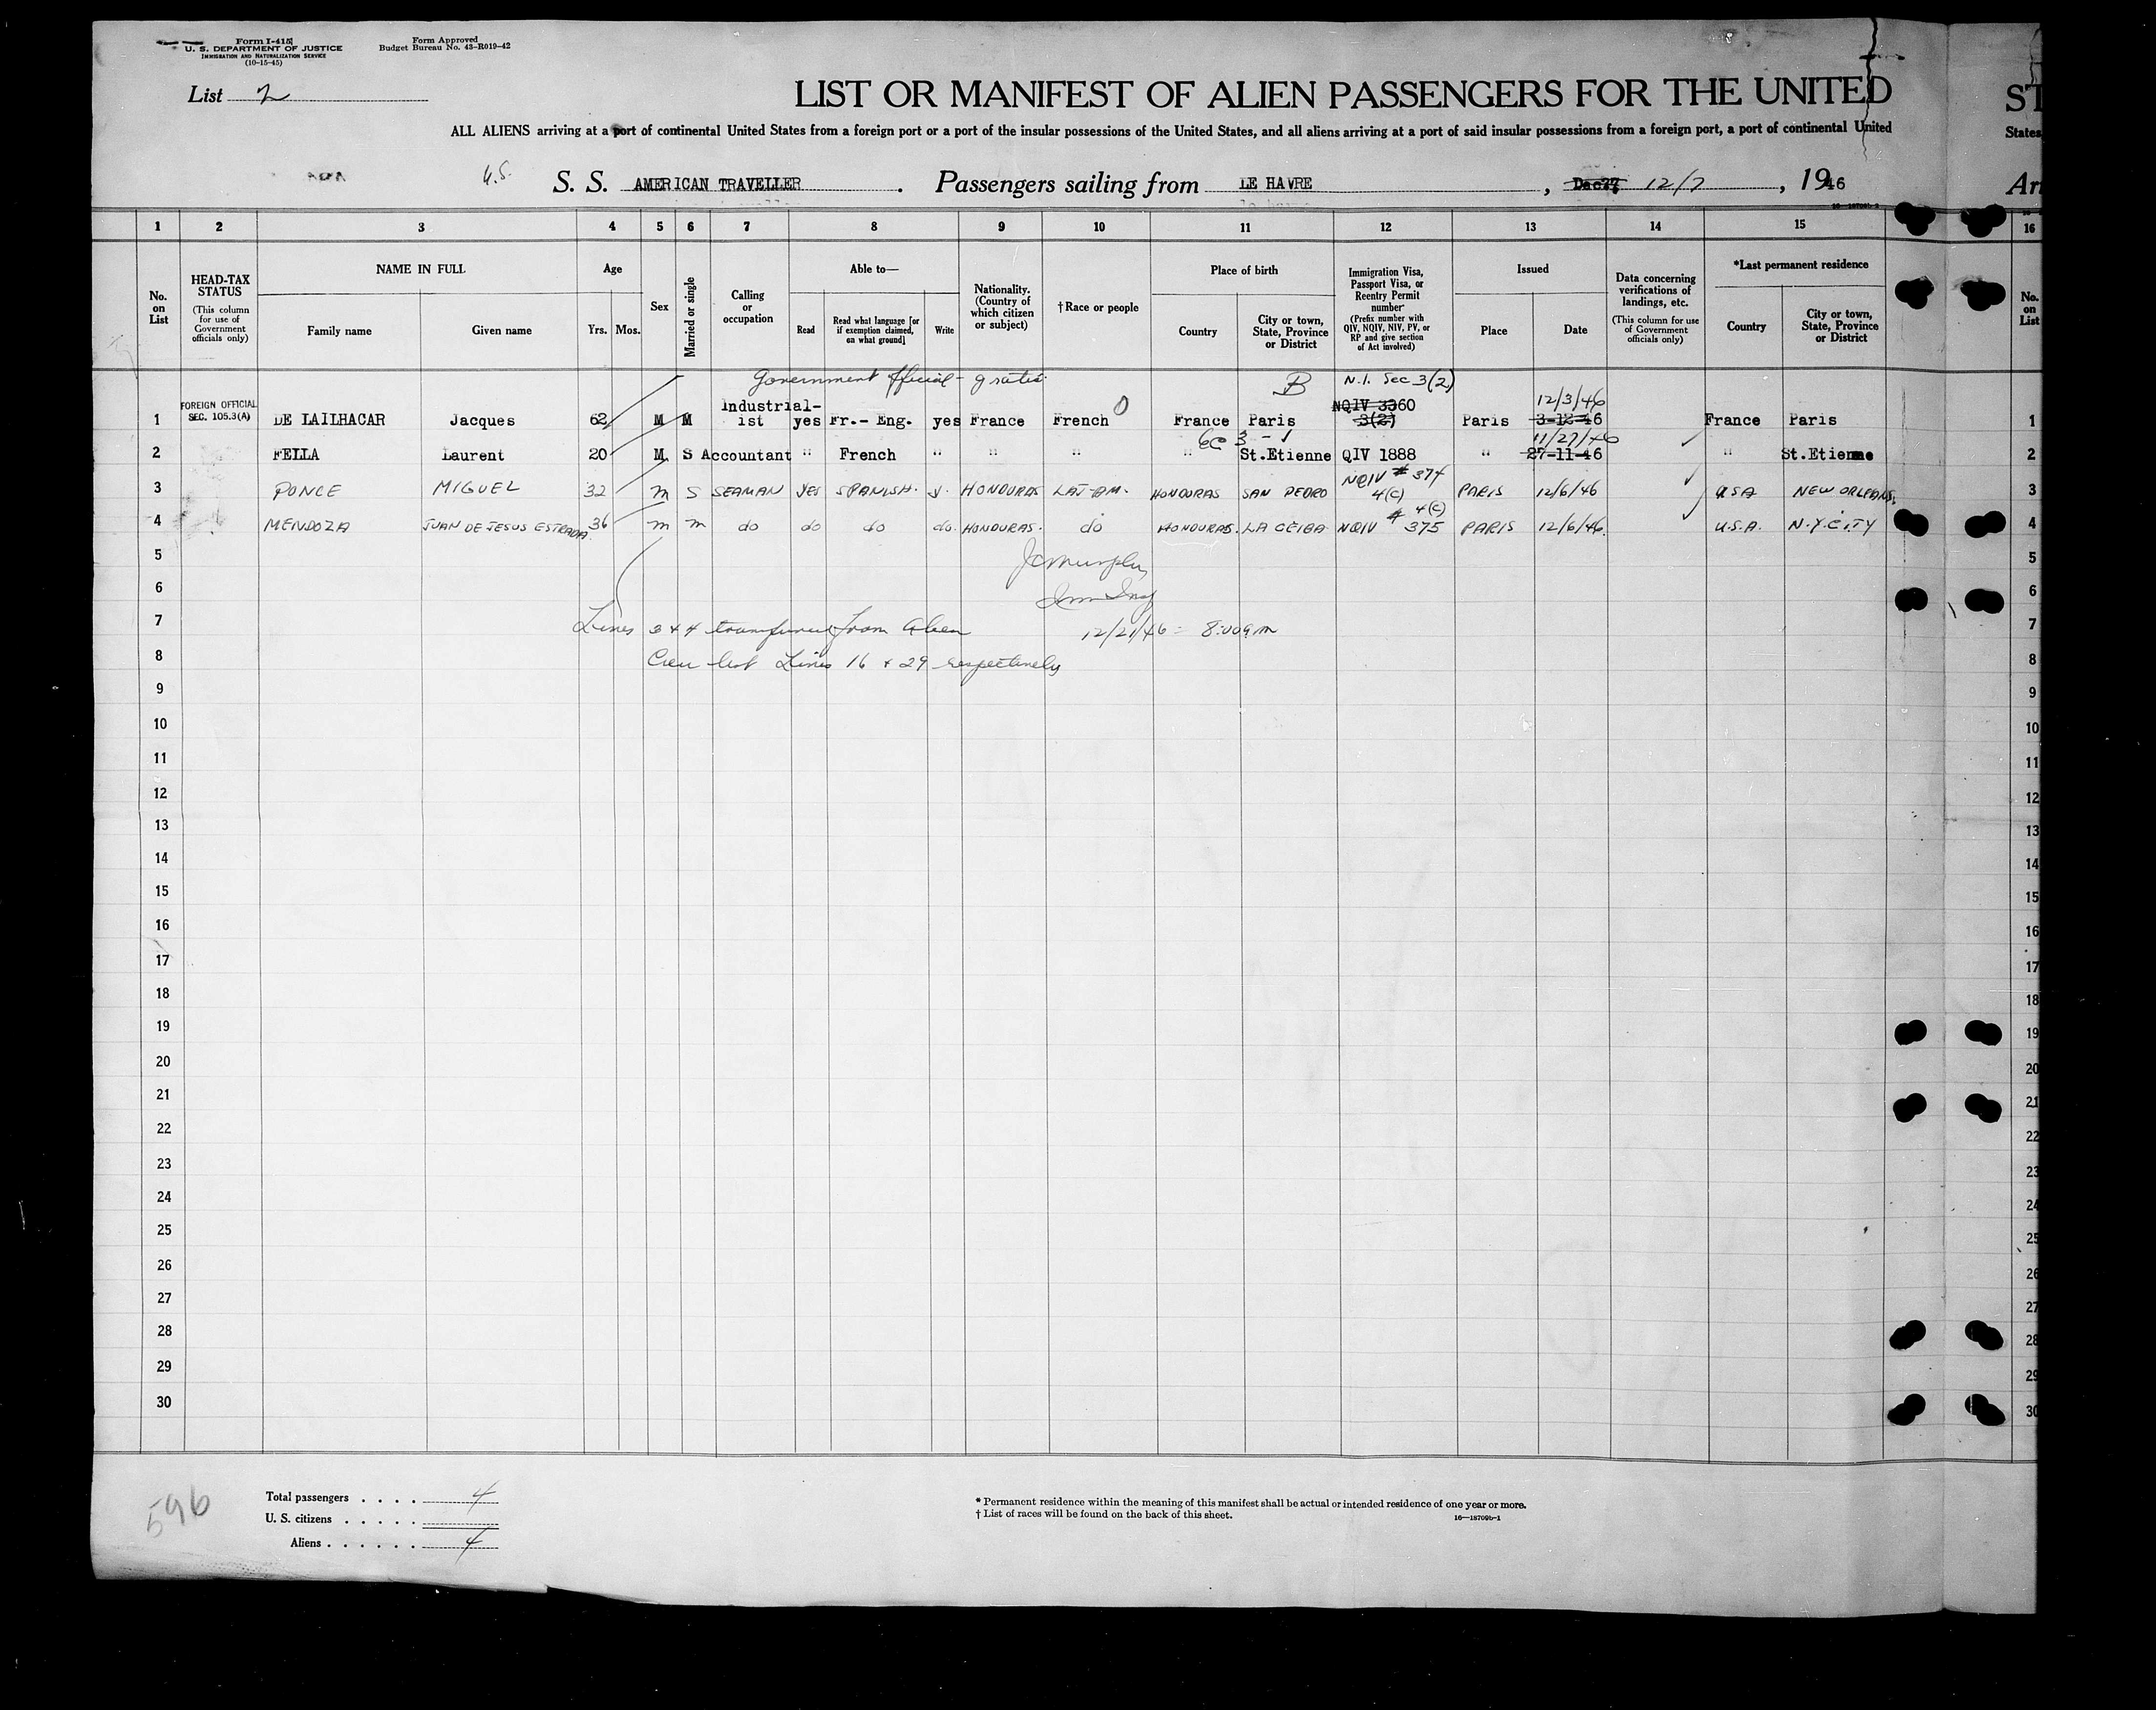 Form I-415
U. S. DEPARTMENT OF JUSTICE
IMMIGRATION AND NATURALIZATION SERVICE
(10-15-45)
Form Approved
Budget Bureau No. 43-R019-42
List 2
LIST OR MANIFEST OF ALIEN PASSENGERS FOR THE UNITED
ST
ALL ALIENS arriving at a port of continental United States from a foreign port or a port of the insular possessions of the United States, and all aliens arriving at a port of said insular possessions from a foreign port, a port of continental United
States
U.S. S. S. AMERICAN TRAVELLER . Passengers sailing from LE HAVRE , Dec 12/7 , 1946
Arr
16-18709b-2
1 2 3 4 5 6 7 8 9 10 11 12 13 14 15 16
No. on List
HEAD-TAX STATUS
(This column for use of Government officials only)
NAME IN FULL
Family name Given name
Age
Yrs. Mos.
Sex
Married or single
Calling or occupation
Able to—
Read
Read what language [or if exemption claimed, on what ground]
Write
Nationality. (Country of which citizen or subject)
†Race or people
Place of birth
Country
City or town, State, Province or District
Immigration Visa, Passport Visa, or Reentry Permit number
(Prefix number with QIV, NQIV, NIV, PV, or RP and give section of Act involved)
Issued
Place Date
Data concerning verifications of landings, etc.
(This column for use of Government officials only)
*Last permanent residence
Country
City or town, State, Province or District
No. on List
Government Official - gratis B N.I. Sec 3(2)
FOREIGN OFFICIAL
SEC. 105.3(A)
Industrial- O NQIV 3360 12/3/46
1 DE LAILHACAR Jacques 62 M M ist yes Fr.- Eng. yes France French France Paris 3(2) Paris 3-12-46 France Paris 1
6c 3 - 1 11/27/46
2 FELLA Laurent 20 M S Accountant " French " " " " St.Etienne QIV 1888 " 27-11-46 " St.Etienne 2
NQIV # 374
3 PONCE MIGUEL 32 M S SEAMAN Yes SPANISH. y. HONDURAS LAT-AM. HONDURAS SAN PEDRO 4(c) PARIS 12/6/46 USA NEW ORLEANS. 3
# 4(c)
4 MENDOZA JUAN DE JESUS ESTRADA 36 m m do do do do. HONDURAS. do HONDURAS. LA CEIBA NQIV 375 PARIS 12/6/46 U.S.A. N.Y.CITY 4
5 JC Murphy 5
6 Imm Insp 6
7 Lines 3 & 4 transferred from Alien 12/21/46 - 8:00am 7
8 Crew list Lines 16 & 29 respectively 8
9 9
10 10
11 11
12 12
13 13
14 14
15 15
16 16
17 17
18 18
19 19
20 20
21 21
22 22
23 23
24 24
25 25
26 26
27 27
28 28
29 29
30 30
596
Total passengers . . . . 4
U. S. citizens . . . . .
Aliens . . . . . . 4
* Permanent residence within the meaning of this manifest shall be actual or intended residence of one year or more.
† List of races will be found on the back of this sheet.
16—18709b-1